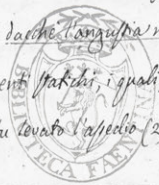 dacchè l'angustia
enti statichi, i quali
fu levato l'assedio (2
BIBLIOTECA FAEN